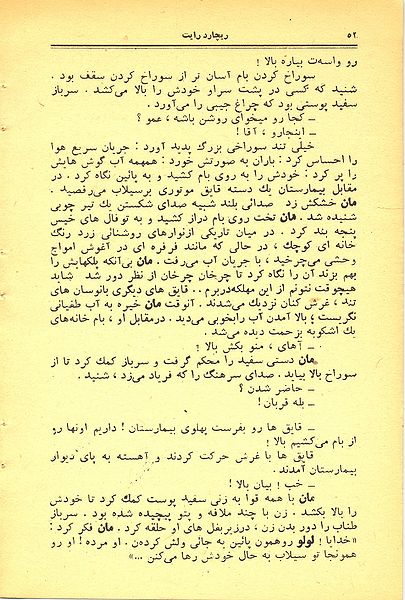 ۵۲
ریچارد رایت
رو واسه‌ت بیاره بالا !
سوراخ کردن بام آسان تر از سوراخ کردن سقف بود .
شنید که کسی در پشت سراو خودش را بالا می‌کشد . سرباز
سفید پوستی بود که چراغ جیبی را می‌آورد .
ـ کجا رو میخوای روشن باشه ، عمو ؟
ـ اینجارو ، آقا !
خیلی تند سوراخی بزرگ پدید آورد : جریان سریع هوا
را احساس کرد : باران به صورتش خورد : همهمه آب گوش هایش
را پر کرد : خودش را به روی بام کشید و به پائین نگاه کرد . در
مقابل بیمارستان یك دسته قایق موتوری برسیلاب می‌رقصید .
مان خشکش زد صدائی بلند شبیه صدای شکستن یك تیر چوبی
شنیده شد . مان تخت روی بام دراز کشید و به توفال های خیس
پنجه بند کرد . در میان تاریکی ازنوارهای روشنائی زرد رنگ
خانه ای کوچك ، در حالی که مانند فرفره ای در آغوش امواج
وحشی می‌چرخید ، با جریان آب می‌رفت . مان بی‌آنکه پلکهایش را
بهم بزند آن را نگاه کرد تا چرخان چرخان از نظر دور شد شاید
هیچوقت نتونم از این مهلکه‌دربرم .. قایق های دیگری بافانوس های
تند ، غرش کنان نزدیك می‌شدند . آنوقت مان خیره به آب طغیانی
نگریست ؛ بالا آمدن آب رابخوبی می‌دید . درمقابل او ، بام خانه‌های
یك اشکوبه بزحمت دیده می‌شد .
ـ آهای ، منو بکش بالا !
مان دستی سفید را محکم گرفت و سرباز کمك کرد تا از
سوراخ بالا بیاید . صدای سرهنگ را که فریاد می‌زد ، شنید .
ـ حاضر شدن ؟
ـ بله قربان !
ـ قایق ها رو بفرست پهلوی بیمارستان ! داریم اونها رو
از بام می‌کشیم بالا !
قایق ها با غرش حرکت کردند و آهسته به پای دیوار
بیمارستان آمدند .
ـ خب ! بیان بالا !
مان با همه قوا به زنی سفید پوست کمك کرد تا خودش
را بالا بکشد . زن با چند ملافه و پتو پیچیده شده بود . سرباز
طناب را دور بدن زن ، درزیربغل های او حلقه کرد . مان فکر کرد :
«خدایا ! لولو روهمون پائین به جائی ولش کرده‌ن . او مرده ! او رو
همونجا تو سیلاب به حال خودش رها می‌کنن ...»